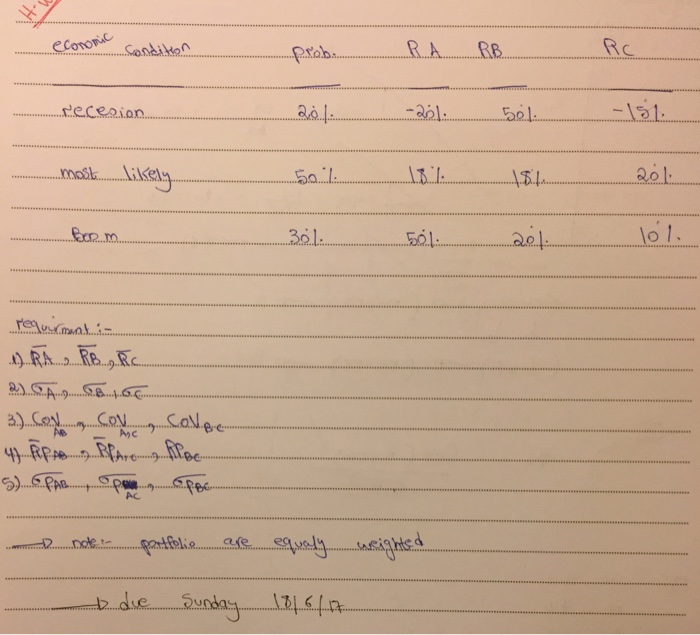 H.W
economic condition prob. RA RB RC
recesion 20% -20% 50% -15%
most likely 50% 18% 18% 20%
Boom 30% 50% 20% 10%
requirment :-
1) R̅A , R̅B , R̅C
2) σA , σB , σC
3) Cov AB , Cov A,C , Cov BC
4) R̅PAB , R̅PA,C , R̅PBC
5) σPAB , σP AC , σPBC
→ note:- portfolio are equaly weighted
→ due Sunday 18/6/17